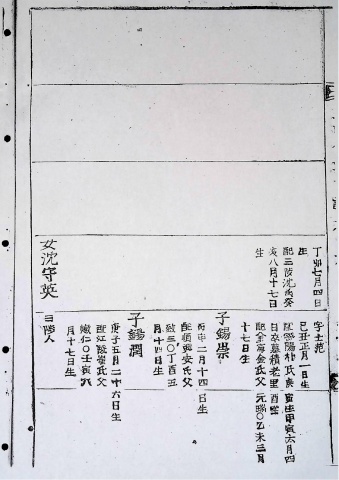 丁卯七月四日
生
配三陟沈
亥八月十七日
生
女沈守英
三陟人
字士範
己丑正月一日生
配密陽朴氏 寅生甲寅六月四
日卒墓積老里酉坐
配金海金氏父元 乙未三月
十七日生
子錫崇
丙申二月十四日生
配順興安氏父
 三〇丁酉五
月十四日生
子錫潤
庚子五月二十六日生
配江陵崔氏父
 仁〇壬寅六
月十七日生